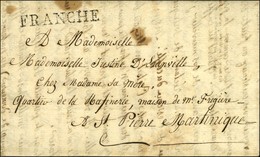 FRANCHE
A Mademoiselle
Mademoiselle Justine D'
Chez Madame sa Mère
Quartier de la Raffinerie maison de Mr
A St Pierre Martinique